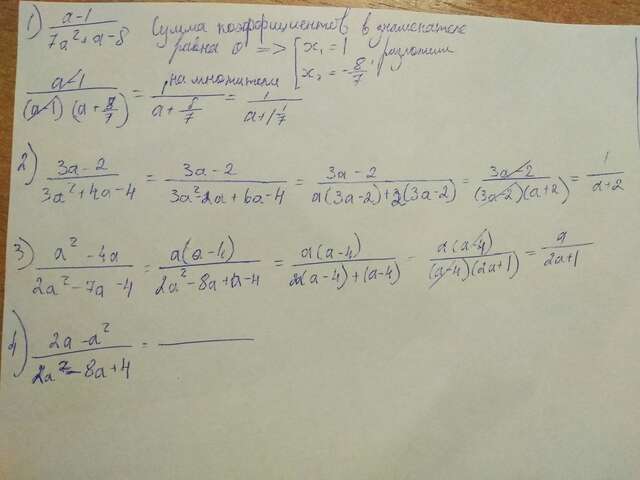 1) (a-1)/(7a²+a-8) Сумма коэффициентов в знаменателе
равна 0 => [x₁ = 1
x₂ = -8/7, разложим
на множители
(a-1)/((a-1)(a+8/7)) = 1/(a+8/7) = 1/(a+1 1/7)
2) (3a-2)/(3a²+4a-4) = (3a-2)/(3a²-2a+6a-4) = (3a-2)/(a(3a-2)+2(3a-2)) = (3a-2)/((3a-2)(a+2)) = 1/(a+2)
3) (a²-4a)/(2a²-7a-4) = a(a-4)/(2a²-8a+a-4) = a(a-4)/(2(a-4)+(a-4)) = a(a-4)/((a-4)(2a+1)) = a/(2a+1)
4) (2a-a²)/(2a²-8a+4) =